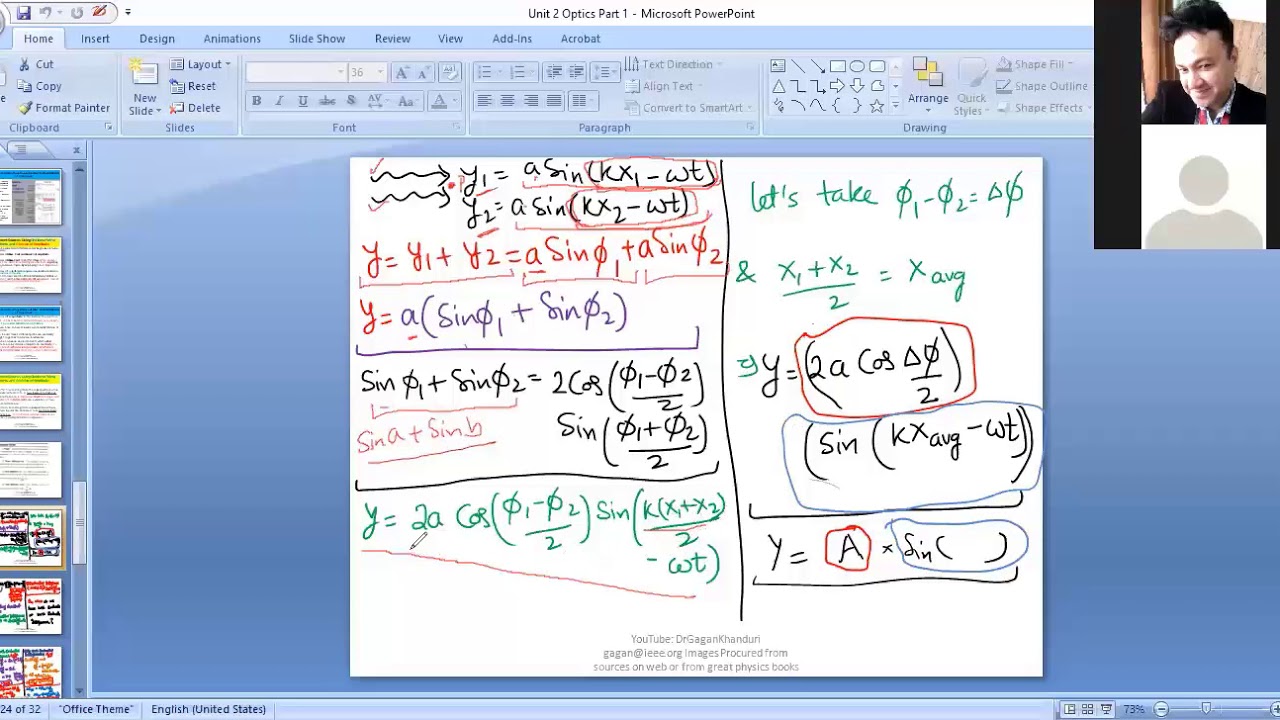 Unit 2 Optics Part 1 - Microsoft PowerPoint
Home Insert Design Animations Slide Show Review View Add-Ins Acrobat
Cut
Copy
Format Painter
Clipboard
New Slide
Layout
Reset
Delete
Slides
36
B I U S abc AV Aa A
Font
Text Direction
Align Text
Convert to SmartArt
Paragraph
Arrange
Quick Styles
Shape Fill
Shape Outline
Shape Effects
Drawing
y₁ = a Sin(kx₁ - ωt)
y₂ = a Sin(kx₂ - ωt)
y = y₁ + y₂ = a Sinϕ₁ + a Sinϕ₂
y = a(Sinϕ₁ + Sinϕ₂)
Sinϕ₁ + Sinϕ₂ = 2Cos((ϕ₁-ϕ₂)/2)
Sin a + Sin b Sin((ϕ₁+ϕ₂)/2)
y = 2a Cos((ϕ₁-ϕ₂)/2) Sin(k(x₁+x₂)/2
- ωt)
let's take ϕ₁-ϕ₂ = Δϕ
& (x₁+x₂)/2 x avg
⇒ y = (2a Cos Δϕ/2)
(Sin (kx avg - ωt))
Y = A × Sin( )
YouTube: DrGaganKhanduri
gagan@ieee.org Images Procured from
sources on web or from great physics books
24 of 32 "Office Theme" English (United States) 73%